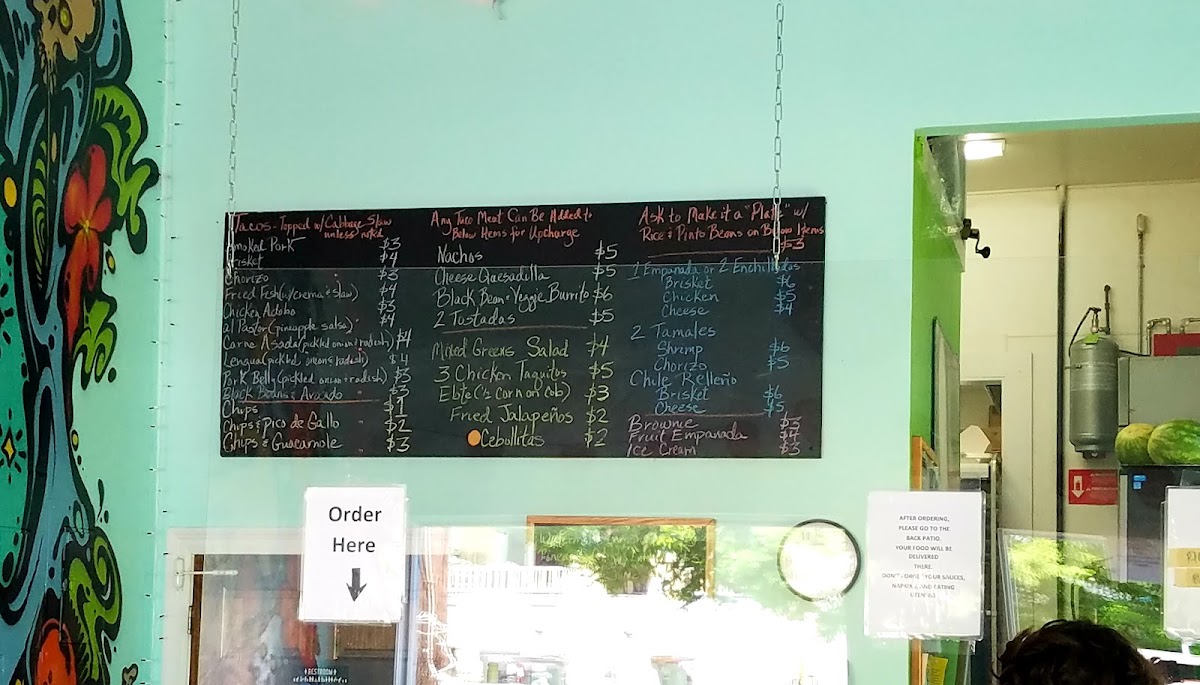 Tacos - Topped w/ Cabbage Slaw
unless noted
Smoked Pork $3
Brisket $4
Chorizo " $3
Fried Fish (w/crema + slaw) $4
Chicken Adobo $3
al Pastor (pineapple salsa) $4
Carne Asada (pickled onion + radish) $4
Lengua (pickled onions & radish) $4
Pork Belly (pickled onion + radish) $3
Black Beans & Avocado $3
Chips $1
Chips & Pico de Gallo $2
Chips & Guacamole $3
Any Taco Meat Can Be Added to
Below Items for Upcharge
Nachos $5
Cheese Quesadilla $5
Black Bean + Veggie Burrito $6
2 Tostadas $5
Mixed Greens Salad $4
3 Chicken Taquitos $5
Elote (½ Corn on Cob) $3
Fried Jalapeños $2
Cebollitas $2
Ask to Make it a "Plate" w/
Rice & Pinto Beans on Below Items
$3
1 Empanada or 2 Enchiladas
Brisket $6
Chicken $5
Cheese $4
2 Tamales
Shrimp $6
Chorizo $5
Chile Relleño
Brisket $6
Cheese $5
Brownie $3
Fruit Empanada $4
Ice Cream $3
Order
Here
AFTER ORDERING,
PLEASE GO TO THE
BACK PATIO.
YOUR FOOD WILL BE
DELIVERED
THERE.
DON'T FORGET YOUR SAUCES,
NAPKINS AND EATING
UTENSILS
RESTROOM